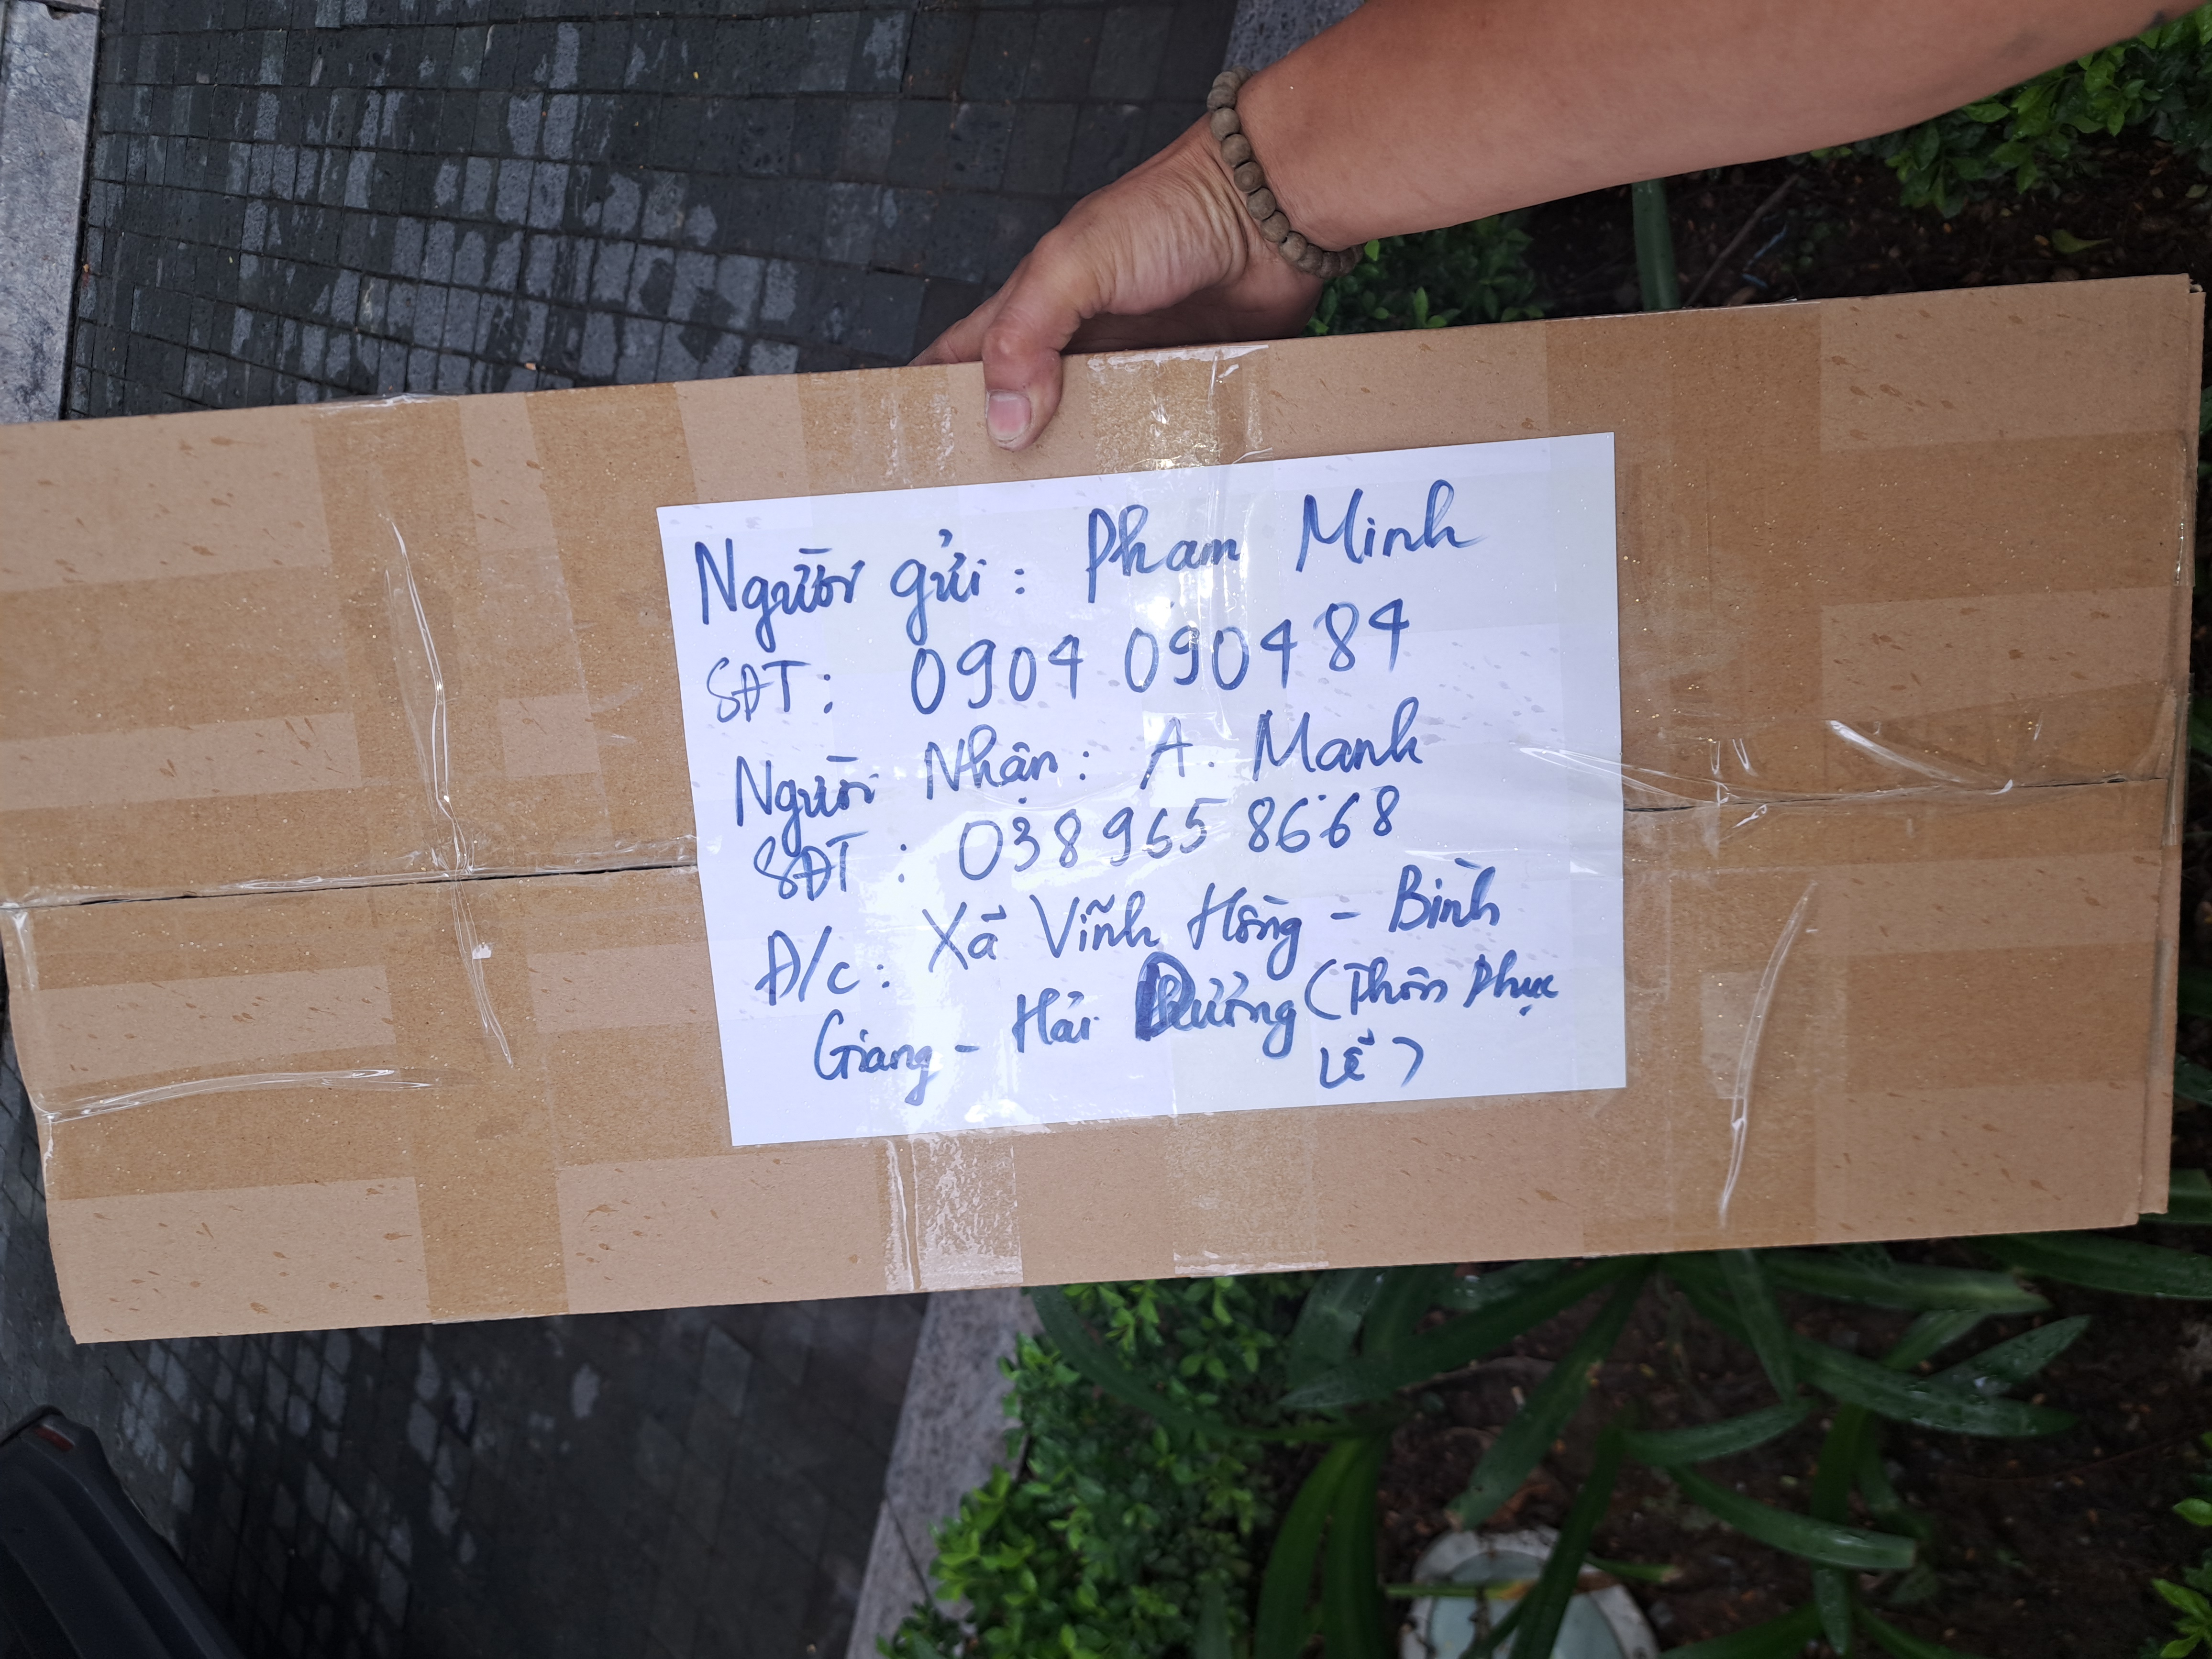 Người gửi: Phạm Minh
SĐT: 0904 090484
Người Nhận: A. Mạnh
SĐT: 038965 8668
Đ/c: Xã Vĩnh Hồng - Bình
Giang - Hải Dương (Thôn Phục
Lễ)